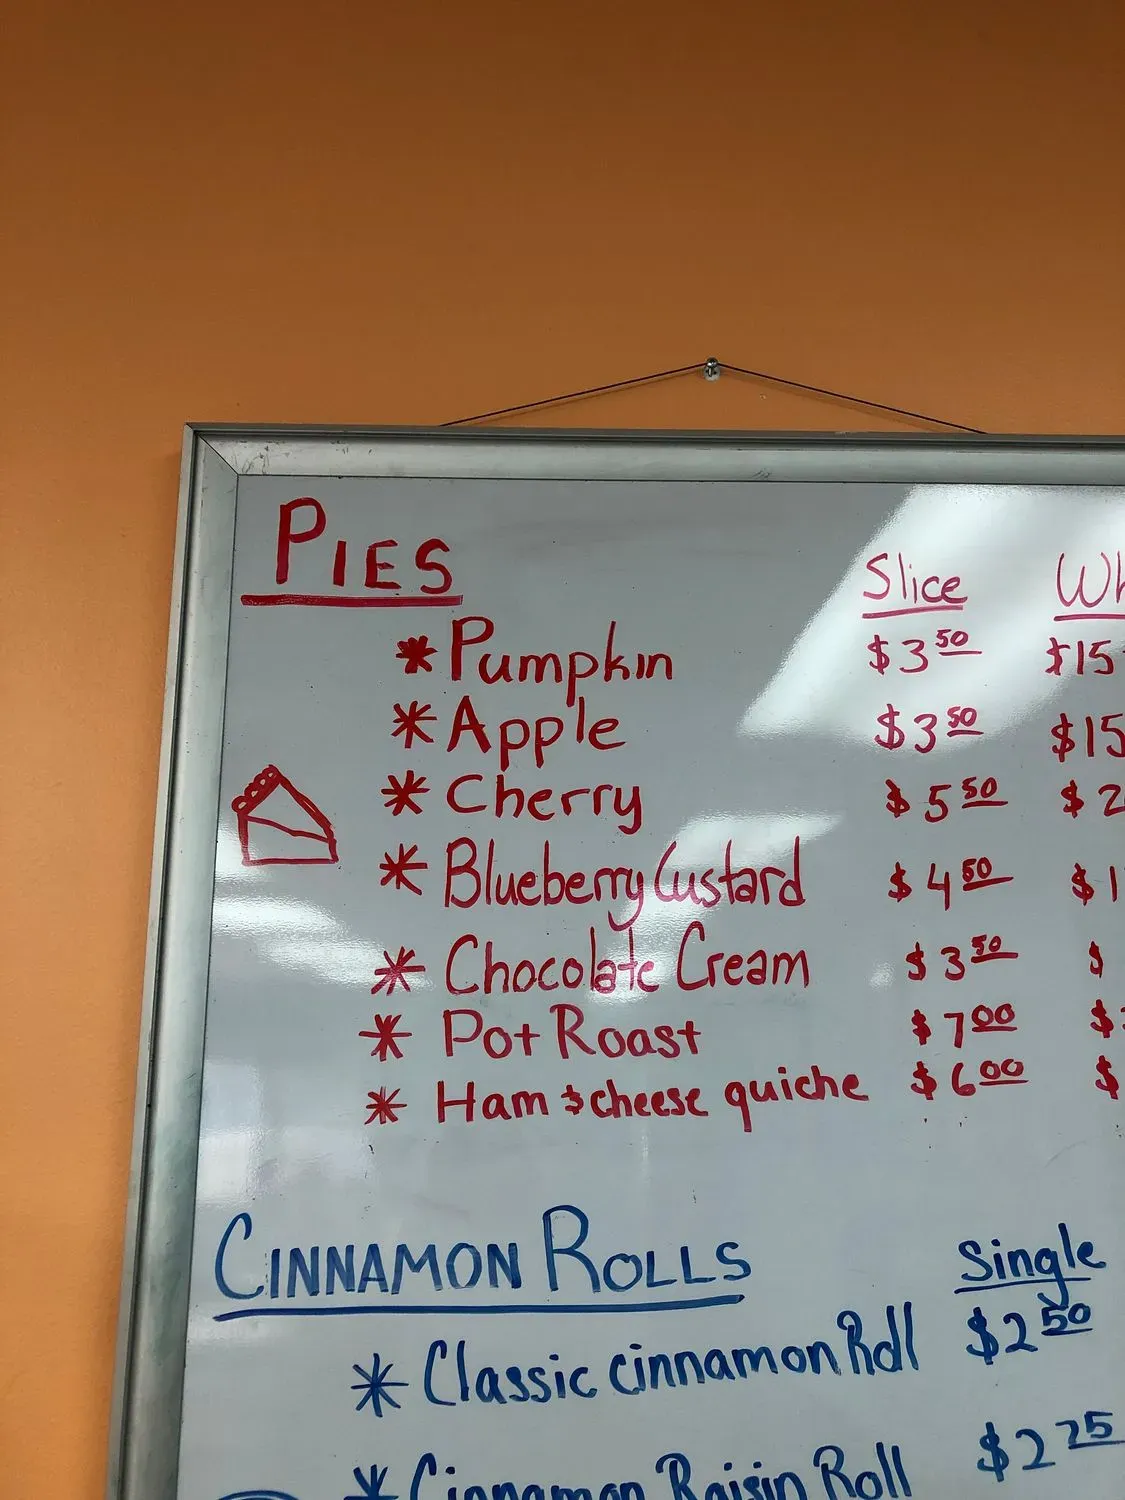 PIES
Slice
* Pumpkin $3.50 $15
* Apple $3.50 $15
* Cherry $5.50 $2
* Blueberry Custard $4.50 $1
* Chocolate Cream $3.50 $
* Pot Roast $7.00 $
* Ham & cheese quiche $6.00 $
CINNAMON ROLLS Single
* Classic cinnamon Roll $2.50
* Cinnamon Raisin Roll $2.75